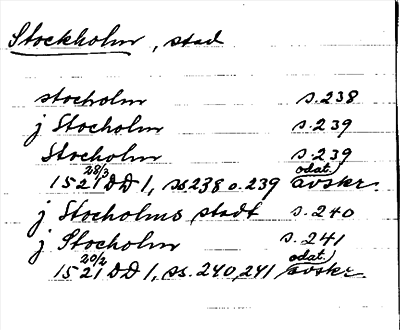 Stockholm, stad
stocholm s. 238
j Stocholm s. 239
Stocholm s. 239
1521 28/3 DD 1, ss. 238 o. 239 odat. avskr.
j Stocholms stadt s. 240
j Stocholm s. 241
1521 20/2 DD 1, ss. 240, 241 odat. avskr.